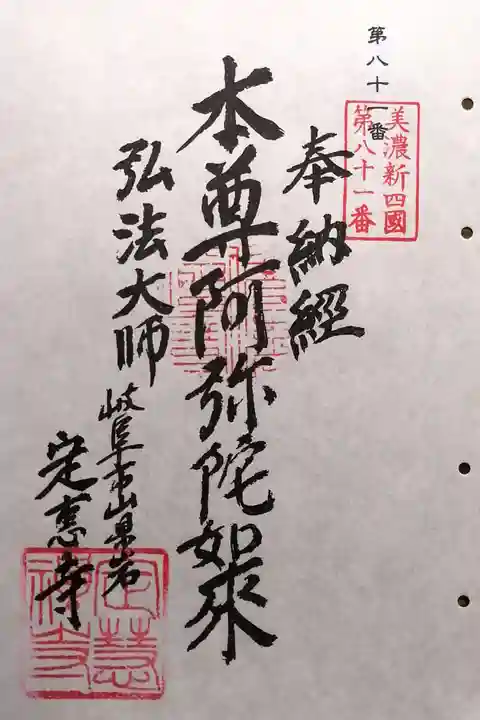 第八十一番
美濃新四國
第八十一番
奉納經
本尊阿弥陀如来
弘法大師
岐阜市山県岩
定恵寺
定慧
禅寺